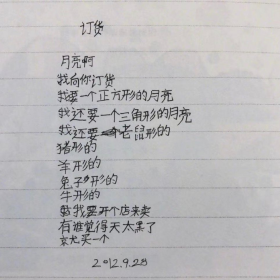 订货
月亮啊
我向你订货
我要一个正方形的月亮
我还要一个三角形的月亮
我还要一个老鼠形的
猪形的
羊形的
兔子形的
牛形的
我要开个店来卖
有谁觉得天太黑了
就买一个
2012.9.28